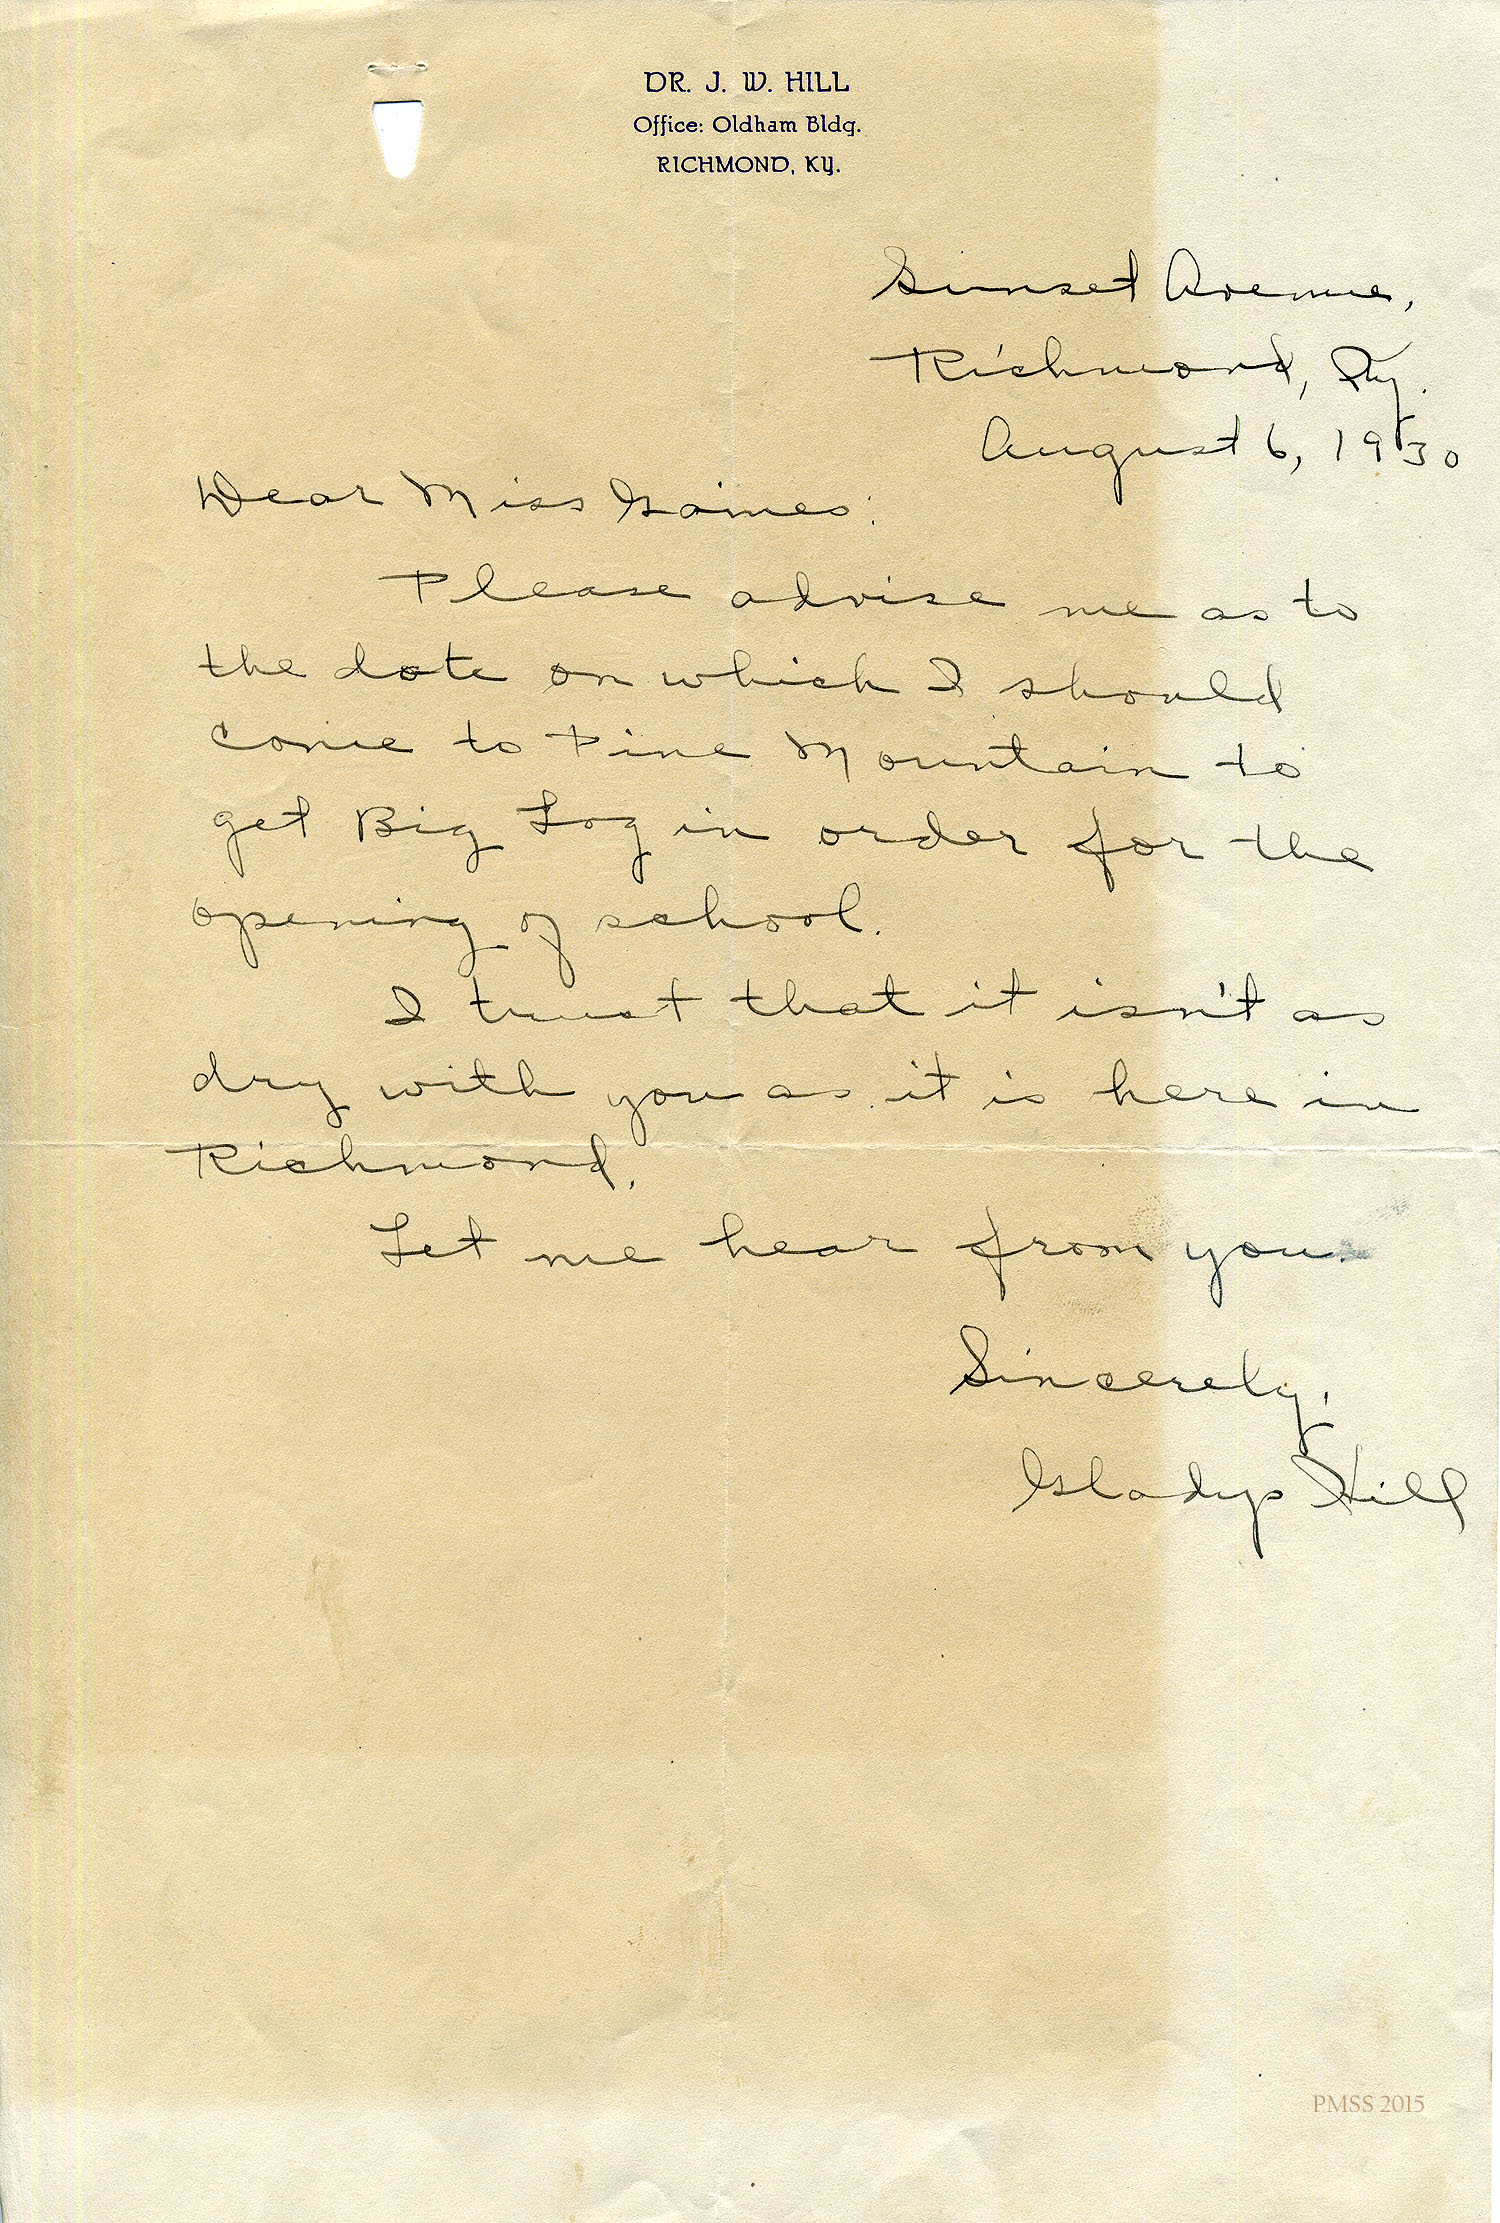 DR. J. W. HILL
Office: Oldham Bldg.
RICHMOND, KY.
Sunset Avenue,
Richmond, Ky.
August 6, 1930
Dear Miss Gaines:
Please advise me as to
the date on which I should
come to Pine Mountain to
get Big Log in order for the
opening of school.
I trust that it isn't as
dry with you as it is here in
Richmond.
Let me hear from you.
Sincerely,
Gladys Hill
PMSS 2015